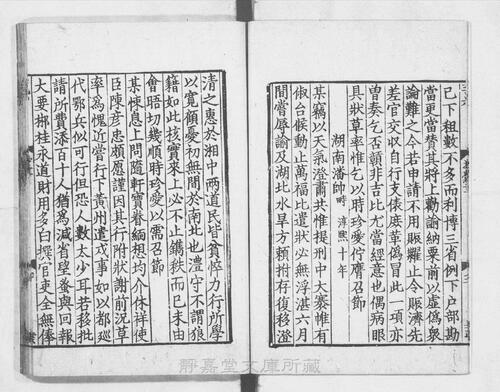 己下租數不多而利博三省例下戶部勘
當更當贊其將上勸諭納粟前以虛僞衆
論難之今若申請不用賑糶止令賑濟先
差官交收自行支俵庶革僞冒此一項亦
曽奏乞否顛非吉比尤當經意也偶病眼
具狀草率惟乞以時珍愛佇膺召節
湖南潘帥時 淳熙十年
某竊以天氣澄肅共惟提刑中大褰帷有
俶台候動止萬福比遣狀必無浮湛六月
間嘗辱諭及湖北水旱方頼拊存復移澄
清之惠於湘中兩道民皆貧悴力行所學
以寛顧憂初無間於南北也澧守不謂狼
籍如此按實來上必不止鐫秩而已未由
會晤切幾順時珍愛以需召節
某悚息上問隨軒寳眷緬想均介休祥使
臣陳彦忠頗愿謹因其行附狀謝前況草
率爲愧近嘗行下黄州遣戍事如以都巡
代鄂兵似可行但恐人數太少耳若移批
請所費添百十人猶爲減省望裁與回報
大要郴桂永道財用多白撰官吏全無俸
靜嘉堂文庫所藏